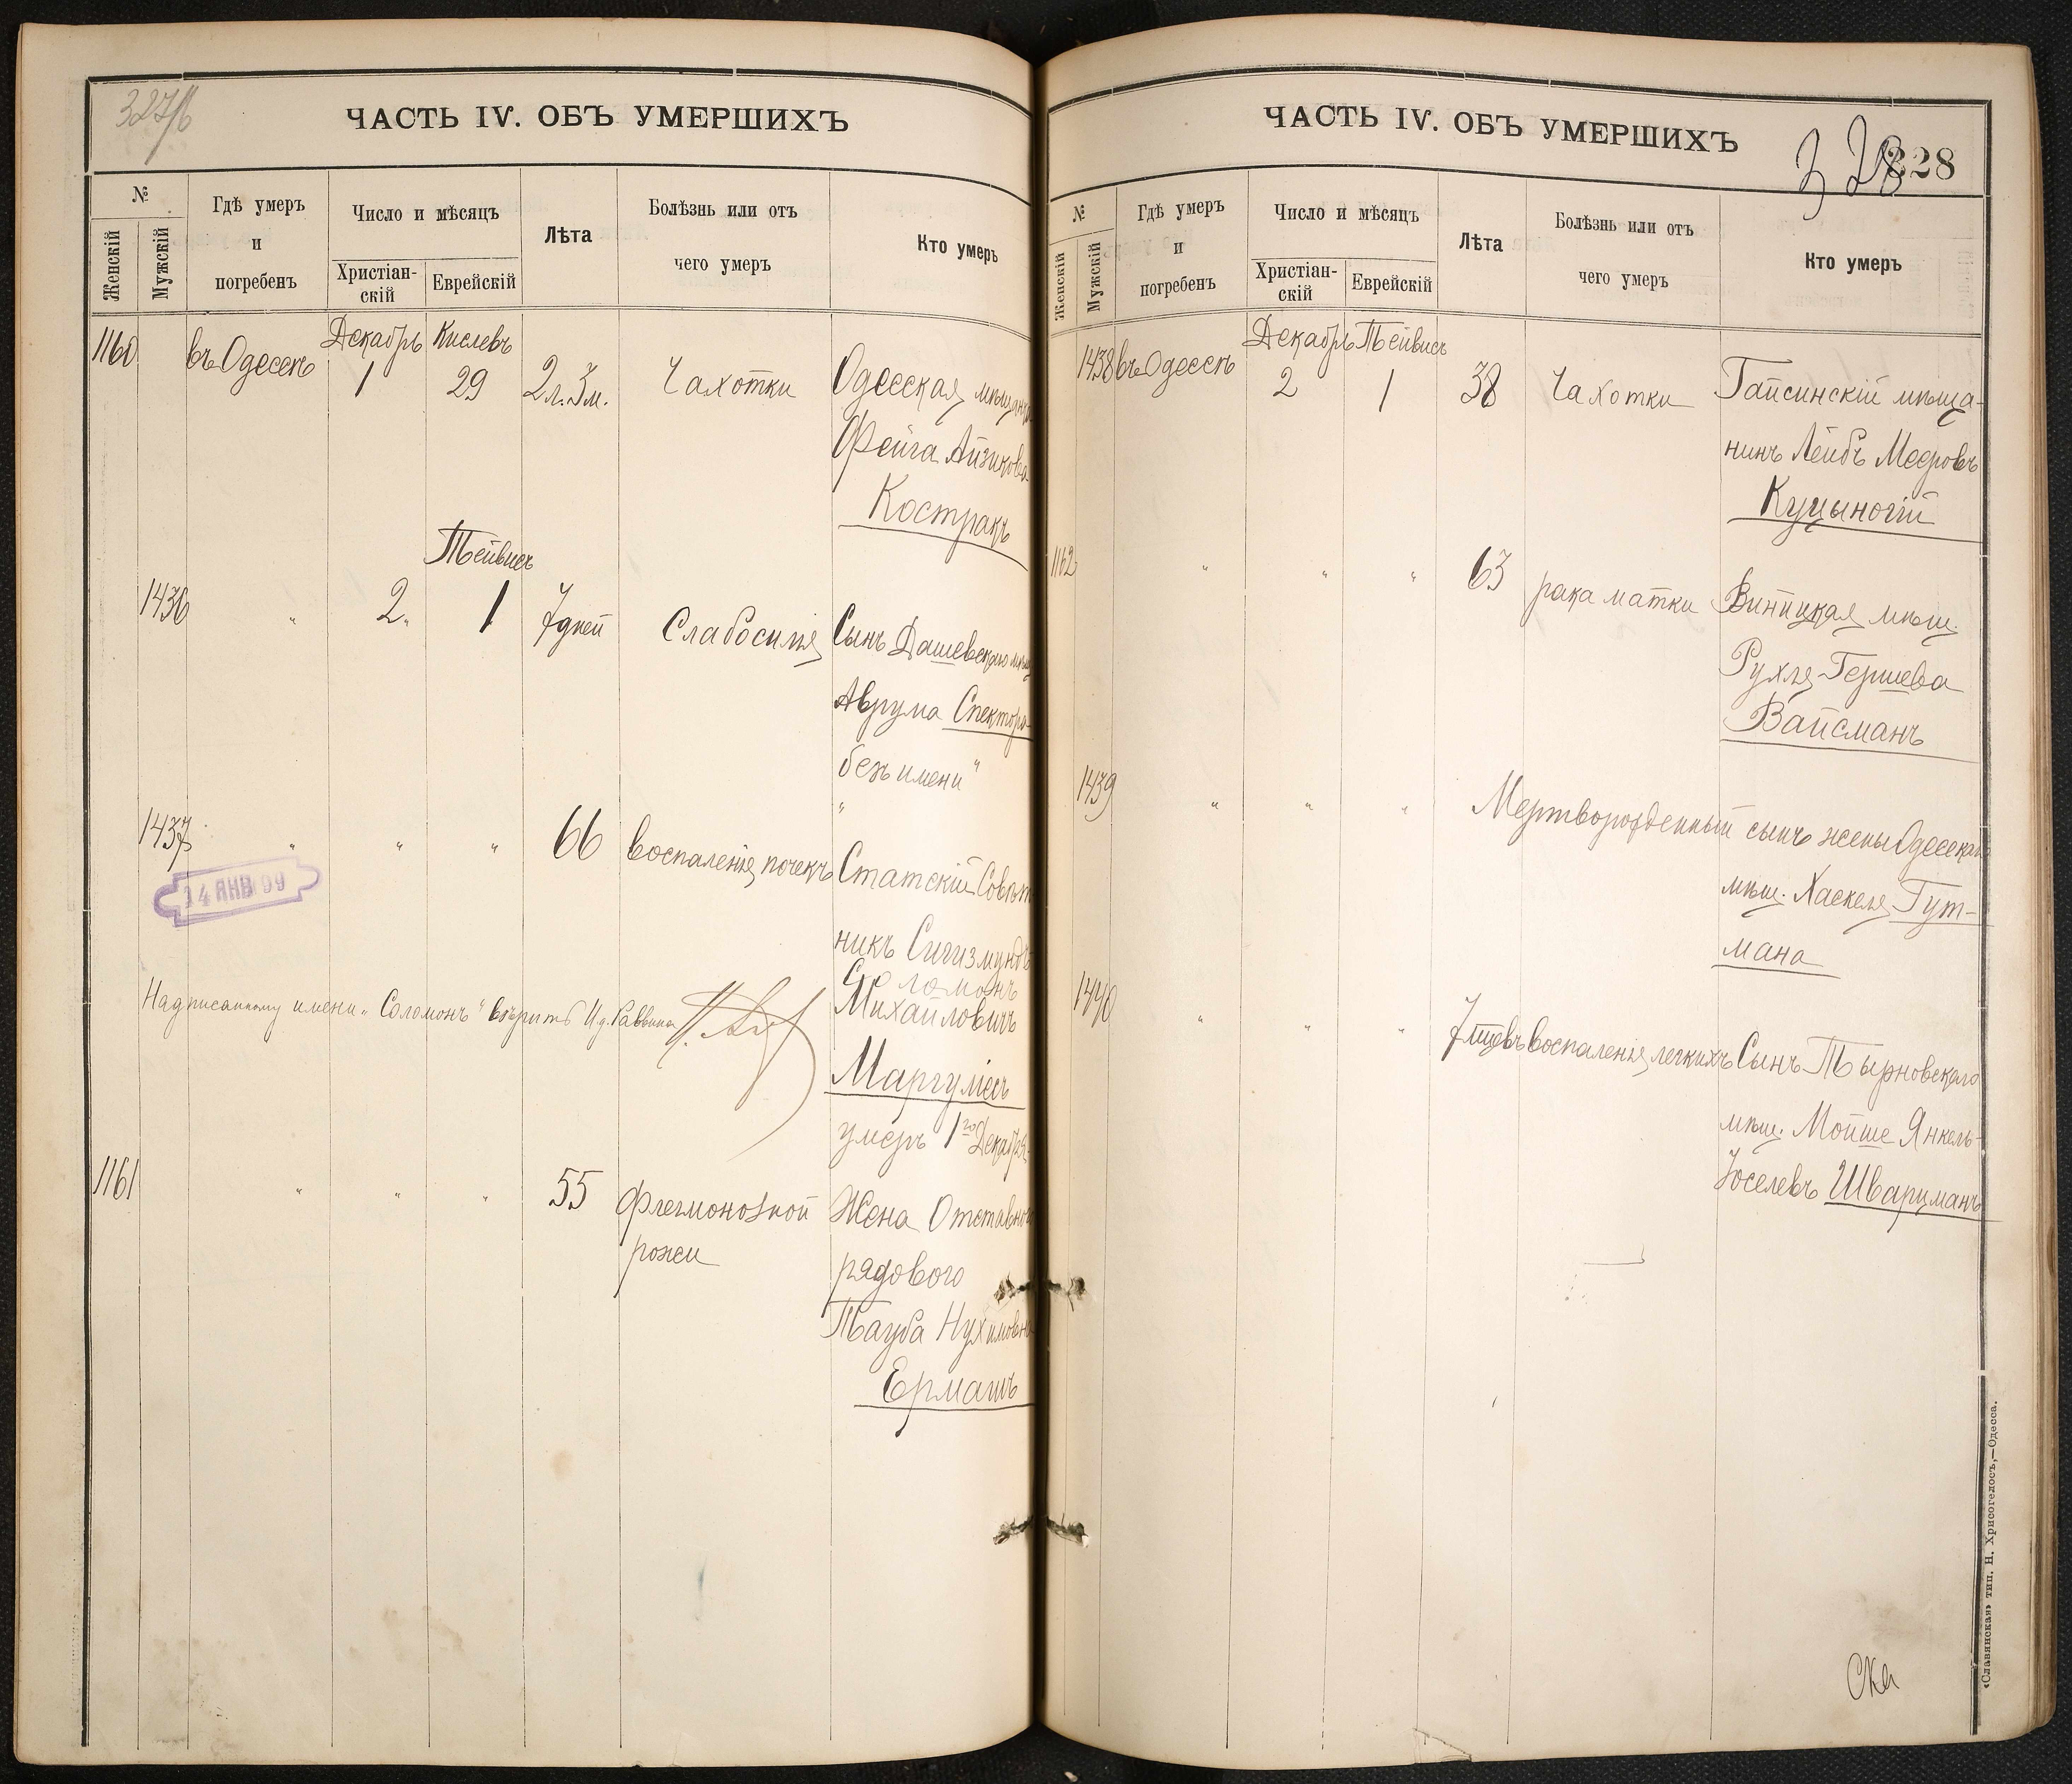 327/б
ЧАСТЬ IV. ОБЪ УМЕРШИХЪ
№
Женскій
Мужскій
Гдѣ умеръ
и
погребенъ
Число и мѣсяцъ
Христіан-
скій
Еврейскій
Лѣта
Болѣзнь или отъ
чего умеръ
Кто умеръ
1160 въ Одессѣ Декабрь 1 Кислевъ 29 2л. 3м. Чахотки Одесская мѣщанка
Фейга Айзикова
Костракъ
Тейвисъ
1436 " 2 " 1 7 дней Слабосилія Сынъ Дашевскаго мѣщ
Аврума Спектора
безъ имени"
"
1437 " " " 66 воспаленія почекъ Статскій Совѣт
14 ЯНВ 99
никъ Сигизмундъ
Соломонъ
Надписанному имени „Соломонъ" вѣрить И.д. Раввина
Михайловичъ
Маргулiесъ
умеръ 1го Декабря
1161 " " " 55 Флегмонозной Жена Отставного
рожи рядового
Тауба Нухимовна
Ерманъ
ЧАСТЬ IV. ОБЪ УМЕРШИХЪ
328
328
№
Женскій
Мужскій
Гдѣ умеръ
и
погребенъ
Число и мѣсяцъ
Христіан-
скій
Еврейскій
Лѣта
Болѣзнь или отъ
чего умеръ
Кто умеръ
1438 въ Одессѣ Декабрь 2 Тейвисъ 1 38 Чахотки Гайсинскій мѣща-
нинъ Лейбъ Мееровъ
Куцыногій
1162 " " " 63 рака матки Винницкая мѣщ.
Рухля Гершева
Вайсманъ
1439 " " " Мертворожденный сынъ жены Одесскаго
мѣщ. Хаскеля Гут-
мана
1440 " " " 7 мцевъ воспаленія легкихъ Сынъ Тырновскаго
мѣщ. Мойше Янкель-
Іоселевъ Шварцманъ
«Славянская» тип. Н. Хрисогелосъ,—Одесса.